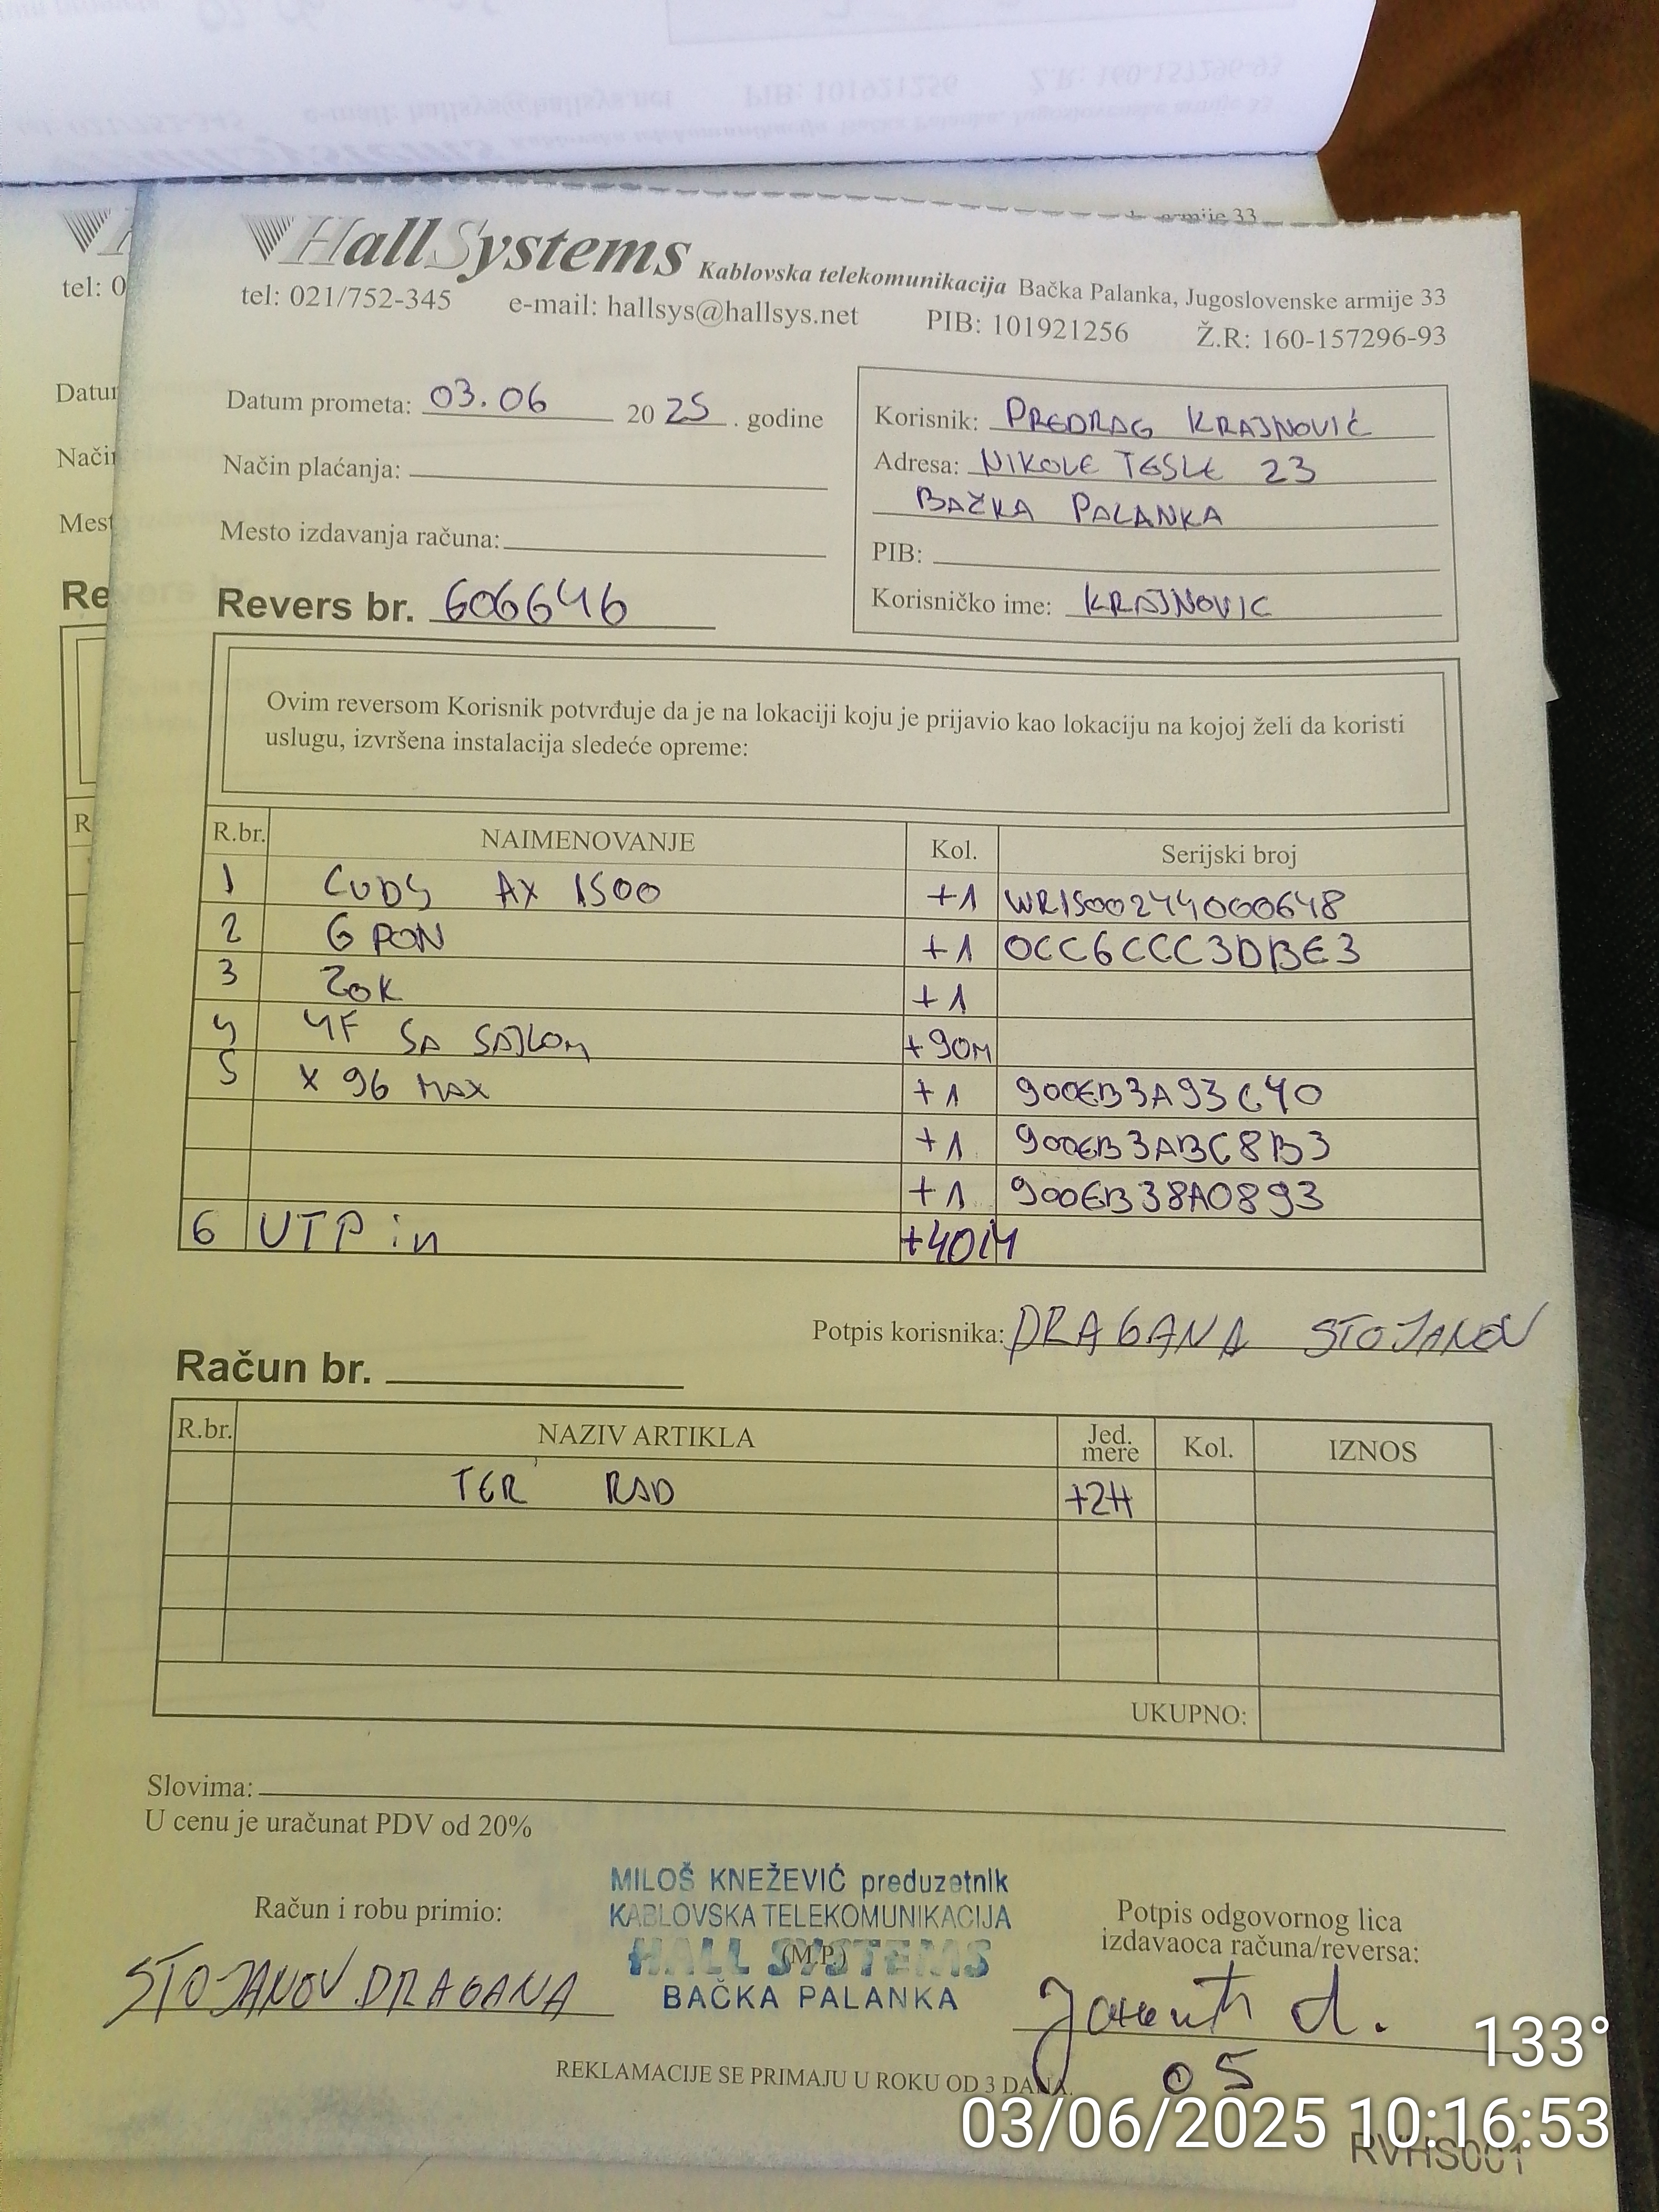 HallSystems Kablovska telekomunikacija Bačka Palanka, Jugoslovenske armije 33
tel: 021/752-345 e-mail: hallsys@hallsys.net PIB: 101921256 Ž.R: 160-157296-93
Datum prometa: 03.06 2025. godine
Način plaćanja:
Mesto izdavanja računa:
Revers br. 606646
Korisnik: PREDRAG KRAJNOVIĆ
Adresa: NIKOLE TESLE 23
BAČKA PALANKA
PIB:
Korisničko ime: KRAJNOVIC
Ovim reversom Korisnik potvrđuje da je na lokaciji koju je prijavio kao lokaciju na kojoj želi da koristi
uslugu, izvršena instalacija sledeće opreme:
R.br. NAIMENOVANJE Kol. Serijski broj
1 CUDY AX 1500 +1 WR1500244000648
2 GPON +1 0CC6CCC3DBE3
3 ZOK +1
4 4F SA SAJLOM +90M
5 X 96 MAX +1 900EB3A93C40
+1 900EB3ABC8B3
+1 900EB38A0893
6 UTP in +40M
Potpis korisnika: DRAGANA STOJANOV
Račun br.
R.br. NAZIV ARTIKLA Jed. mere Kol. IZNOS
TER RAD +2H
UKUPNO:
Slovima:
U cenu je uračunat PDV od 20%
Račun i robu primio:
STOJANOV DRAGANA
MILOŠ KNEŽEVIĆ preduzetnik
KABLOVSKA TELEKOMUNIKACIJA
HALL SYSTEMS
(M.P.)
BAČKA PALANKA
Potpis odgovornog lica
izdavaoca računa/reversa:
05
REKLAMACIJE SE PRIMAJU U ROKU OD 3 DANA.
133°
03/06/2025 10:16:53
RVHS001